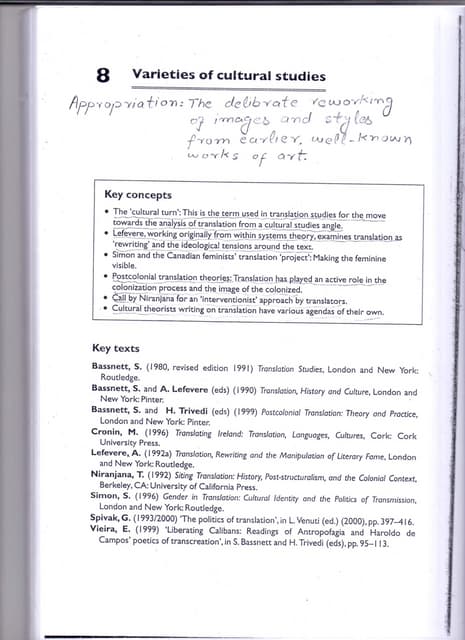 8 Varieties of cultural studies
Appropriation: The delibrate reworking
of images and styles
from earlier, well-known
works of art.
Key concepts
• The 'cultural turn': This is the term used in translation studies for the move
towards the analysis of translation from a cultural studies angle.
• Lefevere, working originally from within systems theory, examines translation as
'rewriting' and the ideological tensions around the text.
• Simon and the Canadian feminists' translation 'project': Making the feminine
visible.
• Postcolonial translation theories: Translation has played an active role in the
colonization process and the image of the colonized.
• Call by Niranjana for an 'interventionist' approach by translators.
• Cultural theorists writing on translation have various agendas of their own.
Key texts
Bassnett, S. (1980, revised edition 1991) Translation Studies, London and New York:
Routledge.
Bassnett, S. and A. Lefevere (eds) (1990) Translation, History and Culture, London and
New York: Pinter.
Bassnett, S. and H. Trivedi (eds) (1999) Postcolonial Translation: Theory and Practice,
London and New York: Pinter.
Cronin, M. (1996) Translating Ireland: Translation, Languages, Cultures, Cork: Cork
University Press.
Lefevere, A. (1992a) Translation, Rewriting and the Manipulation of Literary Fame, London
and New York: Routledge.
Niranjana, T. (1992) Siting Translation: History, Post-structuralism, and the Colonial Context,
Berkeley, CA: University of California Press.
Simon, S. (1996) Gender in Translation: Cultural Identity and the Politics of Transmission,
London and New York: Routledge.
Spivak, G. (1993/2000) 'The politics of translation', in L. Venuti (ed.) (2000), pp. 397–416.
Vieira, E. (1999) 'Liberating Calibans: Readings of Antropofagia and Haroldo de
Campos' poetics of transcreation', in S. Bassnett and H. Trivedi (eds), pp. 95–113.